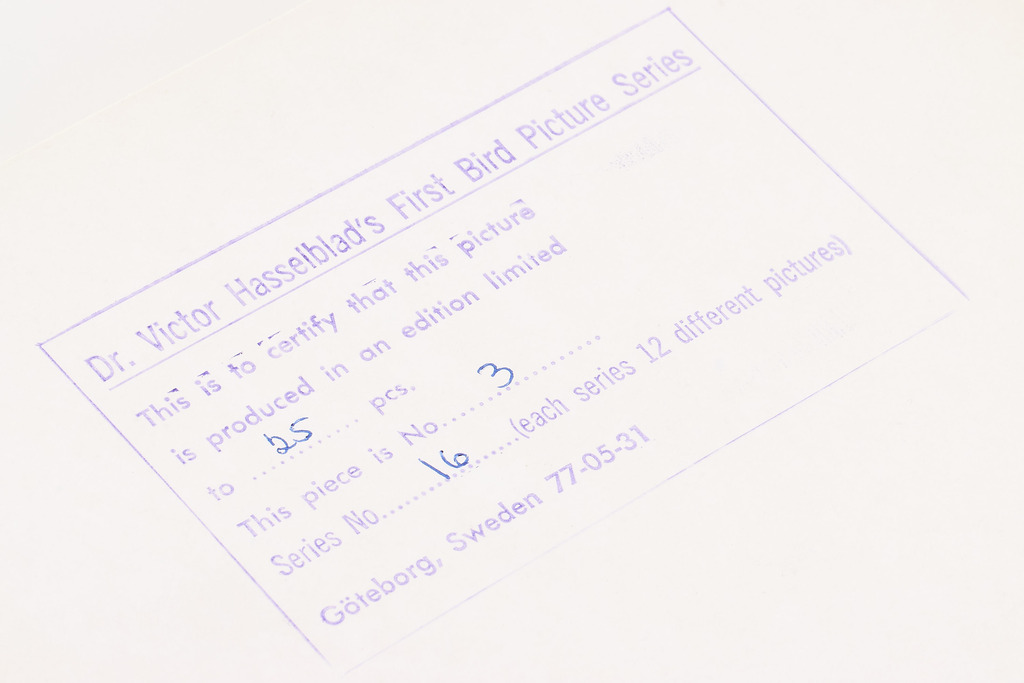 Dr. Victor Hasselblad's First Bird Picture Series
This is to certify that this picture
is produced in an edition limited
to ..... 25 ..... pcs.
This piece is No. ..... 3 .....
Series No. ..... 16 ..... (each series 12 different pictures)
Göteborg, Sweden 77-05-31